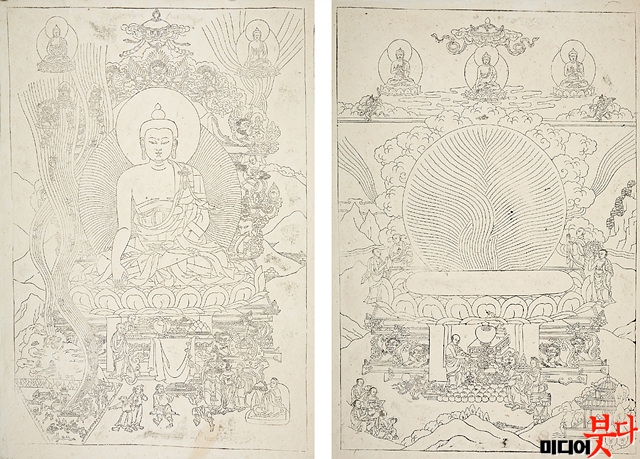 미디어붓다